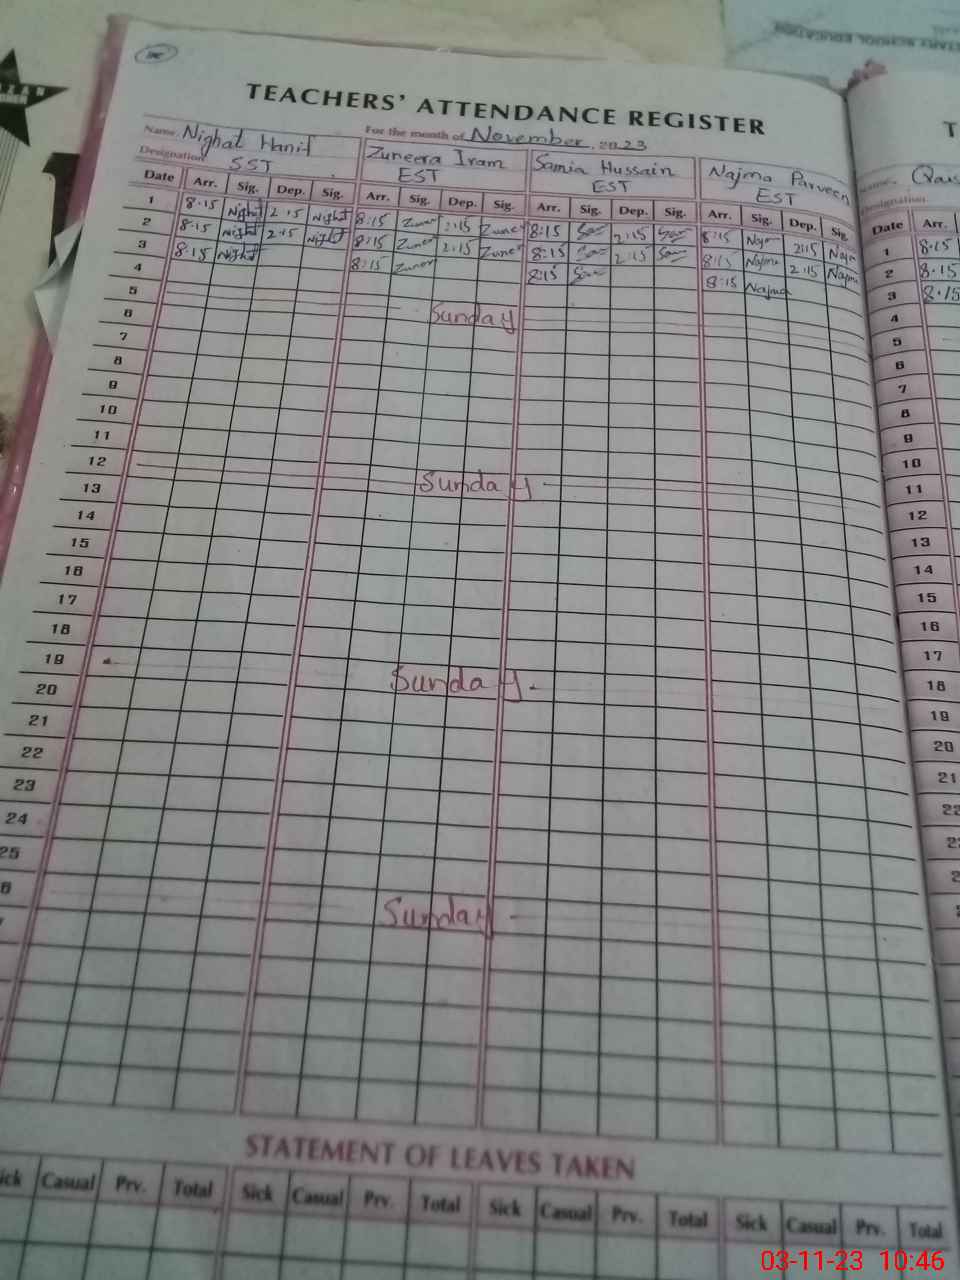 TARY SCHOOL EDUCATION
TEACHERS' ATTENDANCE REGISTER
Name. Nighat Hanif For the month of November, 2023
Designation SST Zuneera Iram EST Samia Hussain EST Najma Parveen EST
Date Arr. Sig. Dep. Sig. Arr. Sig. Dep. Sig. Arr. Sig. Dep. Sig. Arr. Sig. Dep. Sig. Date Arr.
1 8.15 Night 2.15 Night 8:15 Zuner 2:15 Zuner 8:15 2:15 8:15 Najm 2:15 Najm 1 8.15
2 8.15 Night 2.15 Night 8:15 Zuner 2:15 Zuner 8:15 2:15 8:15 Najma 2:15 Najma 2 8.15
3 8.15 Night 8:15 Zuner 8:15 8:15 Najma 3 8.15
4 4
5 Sunday 5
6 6
7 7
8 8
9 9
10 10
11 11
12 Sunday 12
13 13
14 14
15 15
16 16
17 17
18 18
19 Sunday 19
20 20
21 21
22
23
24
25
Sunday
STATEMENT OF LEAVES TAKEN
ick Casual Prv. Total Sick Casual Prv. Total Sick Casual Prv. Total Sick Casual Prv. Total
03-11-23 10:46